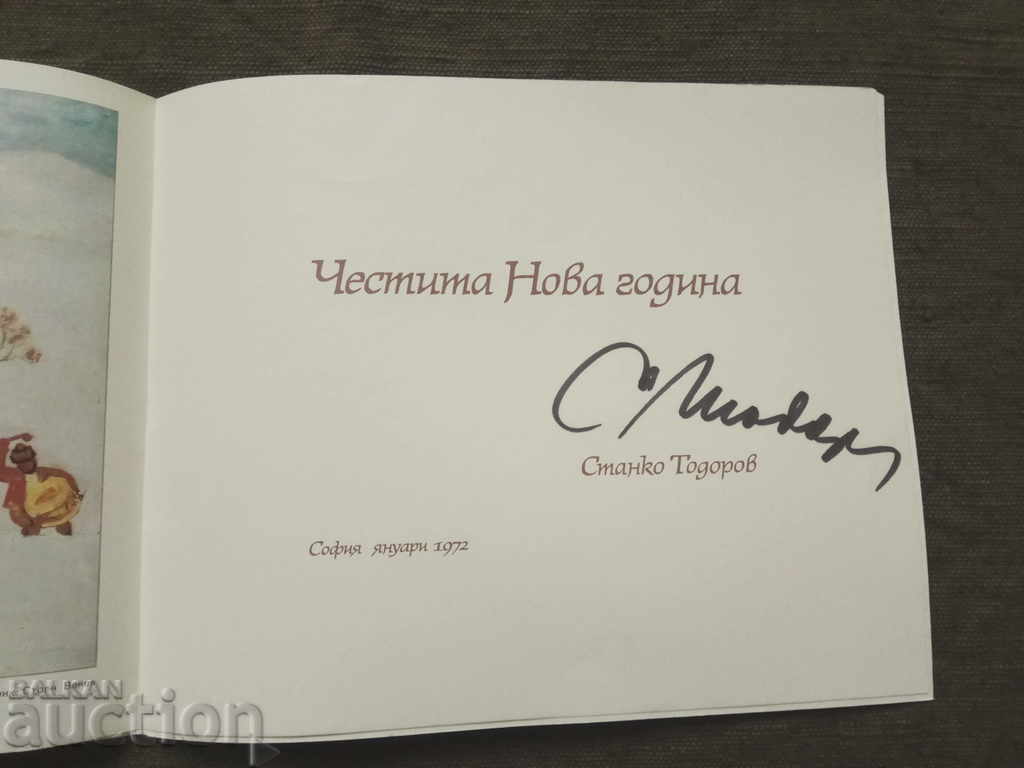 Честита Нова година
С. Тодоров
Станко Тодоров
София януари 1972
BALKAN
auction